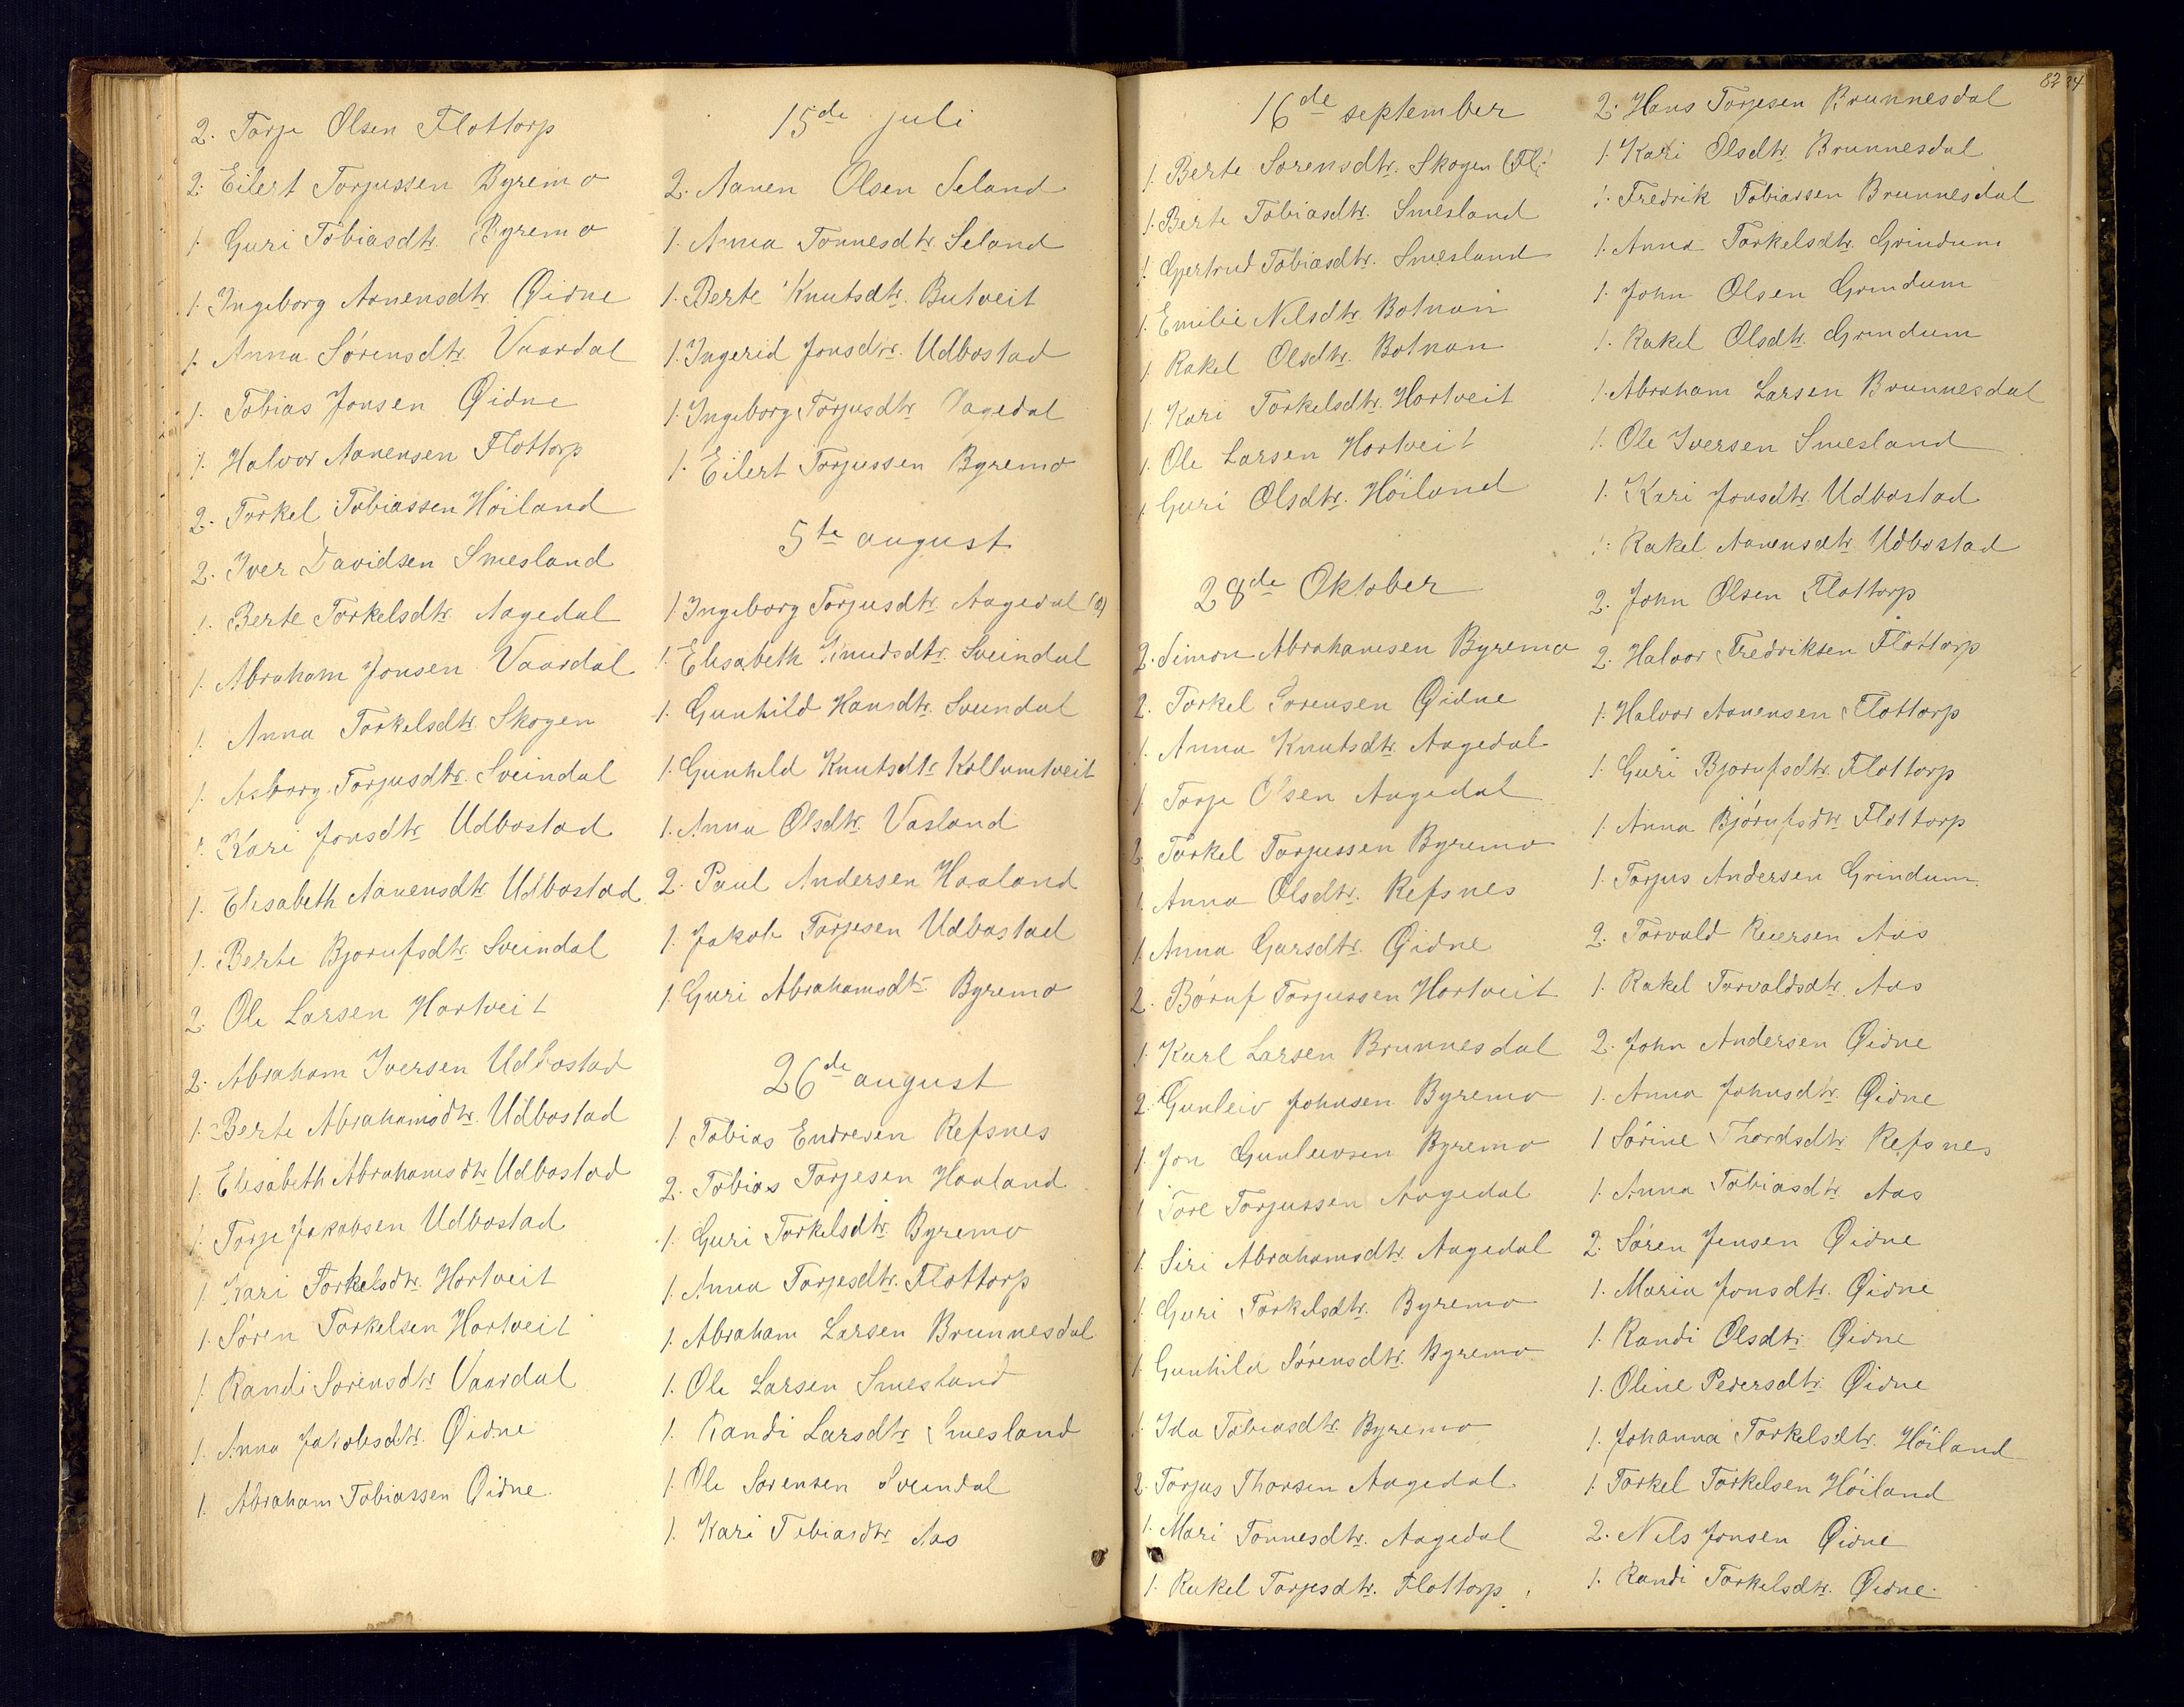 2. Torje Olsen Flottorp
2. Eilert Torjussen Byremo
1. Guri Tobiasdtr. Byremo
1. Ingeborg Aanensdtr. Øidne
1. Anna Sørensdtr. Vaardal
1. Tobias Jonsen Øidne
1. Halvor Aanensen Flottorp
2. Torkel Tobiassen Höiland
2. Iver Davidsen Smesland
1. Berte Torkelsdtr. Aagedal
1. Abraham Jonsen Vaardal
1. Anna Torkelsdtr. Skogen
1. Asborg Torjusdtr. Sveindal
1. Kari Jonsdtr. Udbostad
1. Elisabeth Aanensdtr. Udbostad
1. Berte Bjorufsdtr. Sveindal
2. Ole Larsen Hortveit
2. Abraham Iversen Udbostad
1. Berte Abrahamsdtr. Udbostad
1. Elisabeth Abrahamsdtr. Udbostad
1. Torje Jakobsen Udbostad
1. Kari Torkelsdtr. Hortveit
1. Søren Torkelsen Hortveit
1. Randi Sorensdtr. Vaardal
1. Anna Jakobsdtr. Øidne
1. Abraham Tobiassen Øidne.
15de juli
2. Aanen Olsen Seland
1. Anna Tonnesdtr. Seland
1. Berte Knutsdtr. Butveit
1. Ingerid Jonsdtr. Udbostad
1. Ingeborg Torjusdtr. Aagedal
1. Eilert Torjussen Byremo
5te august
1 Ingeborg Torjusdtr. Aagedal
1. Elisabeth Knudsdtr. Sveindal
1. Gunhild Hansdtr. Sveindal
1. Gunhild Knutsdtr. Kollumtveit
1. Anna Olsdtr. Vasland
2. Paul Andersen Haaland
1. Jakob Torjesen Udbostad
1. Guri Abrahamsdtr. Byremo
26de august
1. Tobias Endresen Refsnes
2. Tobias Torjesen Haaland
1. Guri Torkelsdtr. Byremo
1. Anna Torjesdtr. Flottorp
1. Abraham Larsen Brunnesdal
1. Ole Larsen Smesland
1. Randi Larsdtr. Smesland
1. Ole Sorensen Sveindal
1. Kari Tobiasdtr. Aas
82 84
16de september
1. Berte Sorensdtr. Skogen (Fl:
1. Berte Tobiasdtr. Smesland
1. Gjertrud Tobiasdtr. Smesland
1. Emilie Nilsdtr. Botnan
1. Rakel Olsdtr. Botnan
1. Kari Torkelsdtr. Hortveit
1. Ole Larsen Hortveit
1 Guri Olsdtr. Höiland
28de Oktober
2. Simon Abrahamsen Byremo
2. Torkel Sorensen Øidne
1. Anna Knutsdtr. Aagedal
1 Torje Olsen Aagedal
2. Torkel Torjussen Byremo
1. Anna Olsdtr. Refsnes
1. Anna Garsdtr. Øidne
2. Boruf Torjussen Hortveit
1. Karl Larsen Brunnesdal
2. Gunleiv Johnsen Byremo
1. Jon Gunleivsen Byremo
1 Tore Torjussen Aagedal
1. Siri Abrahamsdtr. Aagedal
1. Guri Torkelsdtr. Byremo
1. Gunhild Sørensdtr. Byremo
1. Ida Tobiasdtr. Byremo
2. Torjus Thorsen Aagedal
1. Mari Tonnesdtr. Aagedal
1. Rakel Torjesdtr. Flottorp.
2. Hans Torjesen Brunnesdal
1. Kari Olsdtr. Brunnesdal
1. Fredrik Tobiassen Brunnesdal
1. Anna Torkelsdtr. Grindum
1. John Olsen Grindum
1. Rakel Olsdtr. Grindum
1. Abraham Larsen Brunnesdal
1. Ole Iversen Smesland
1. Kari Jonsdtr. Udbostad
1. Rakel Aanensdtr. Udbostad
2. John Olsen Flottorp
2. Halvor Fredriksen Flottorp
1. Halvor Aanensen Flottorp
1. Guri Bjorufsdtr. Flottorp
1. Anna Bjórufsdtr. Flottorp
1. Torjus Andersen Grindum.
2. Torvald Reiersen Aas
1. Rakel Torvaldsdtr. Aas
2. John Andersen Øidne
1. Anna Johnsdtr. Øidne
1 Sörine Thordsdtr. Refsnes
1. Anna Tobiasdtr. Aas
2. Sören Jensen Øidne
1. Maria Jonsdtr. Øidne
1. Randi Olsdtr. Øidne
1. Oline Pedersdtr. Øidne
1. Johanna Torkelsdtr. Höiland
1. Torkel Torkelsen Höiland
2. Nils Jonsen Øidne
1. Randi Torkelsdtr. Øidne.